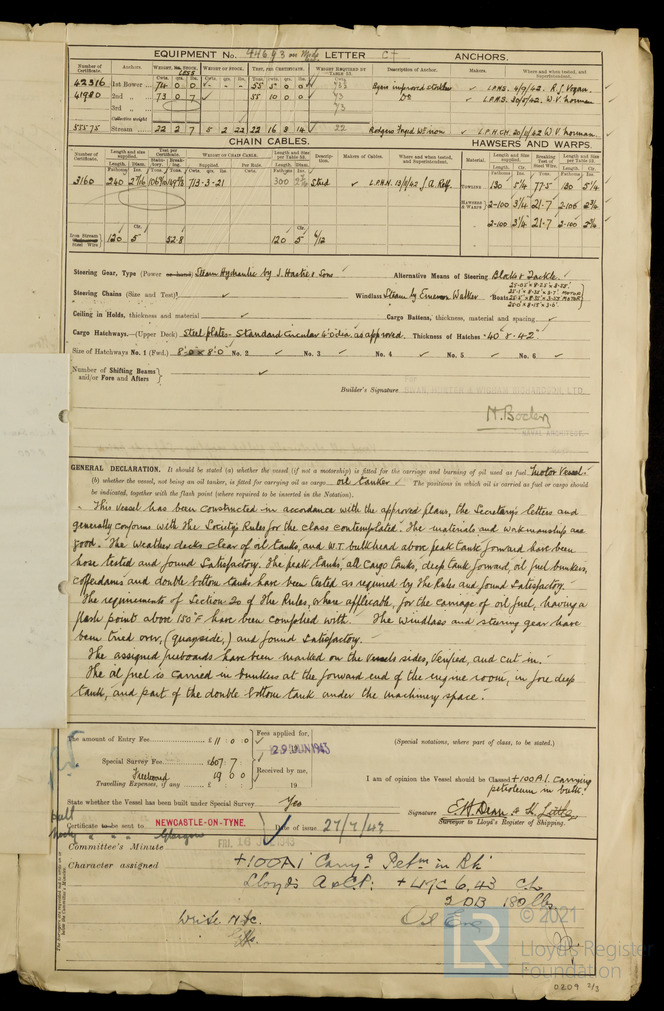 EQUIPMENT No. 94693 LETTER C† ANCHORS.
Number of Certificate. Anchors. Weight, Ex. Stock. Weight of Stock. Test, per Certificate. Weight Required by Table 53. Description of Anchor. Makers. Where and when tested, and Superintendent.
42316 1st Bower 74 0 0 - - - 55 5 0 0 Byers improved Stockless L.P.H.S. 4/9/42. R.J. Vegan.
41980 2nd 73 0 7 55 10 0 0 73 Do L.P.H.S. 30/5/42. W.V. Norman
3rd 73
Collective weight
55575 Stream 22 2 7 5 2 22 22 16 3 14 22 Rodgers Forged W. iron L.P.H.CH. 20/11/42 W.V. Norman
CHAIN CABLES. HAWSERS AND WARPS.
Number of Certificate. Length and size supplied. Test per Certificate. Weight of Chain Cable. Length and size per Table 53. Makers of Cables. Where and when tested, and Superintendent. Material. Length and Size supplied. Breaking Test of Steel Wire. Length and Size per Table 53.
3160 240 2 7/16 713-3-21 300 Stud L.P.H.N. J.A. Relf. Towlines 130 5¼ 77·5 130 5¼
Hawsers & Warps 2-100 3¼ 21·7 2-100 2¾
2-100 3¼ 21·7 2-100 2¾
Iron Stream Steel Wire 120 5 52·8 120 5 6/12
Steering Gear, Type (Power or hand) Steam Hydraulic by J. Hastie & Sons Alternative Means of Steering Blocks & Tackle.
Steering Chains (Size and Test) Windlass Steam by Emerson Walker Boats
Ceiling in Holds, thickness and material Cargo Battens, thickness, material and spacing
Cargo Hatchways.—(Upper Deck) Steel plate - Standard circular 4'0" dia. as approved. Thickness of Hatches ·40" & ·42"
Size of Hatchways No. 1 (Fwd.) 8'-0 x 8'-0" No. 2 No. 3 No. 4 No. 5 No. 6
Number of Shifting Beams and/or Fore and Afters
Builder's Signature SWAN, HUNTER & WIGHAM RICHARDSON, LTD.
NAVAL ARCHITECT.
GENERAL DECLARATION. It should be stated (a) whether the vessel (if not a motorship) is fitted for the carriage and burning of oil used as fuel Motor Vessel.
(b) whether the vessel, not being an oil tanker, is fitted for carrying oil as cargo oil tanker The positions in which oil is carried as fuel or cargo should
be indicated, together with the flash point (where required to be inserted in the Notation).
This Vessel has been constructed in accordance with the approved plans, the Secretary's letters and
generally conforms with the Society's Rules for the class contemplated. The materials and workmanship are
good. The weather decks clear of oil tanks and W.T. bulkhead above peak tank forward have been
hose tested and found satisfactory. The peak tanks, all cargo tanks, deep tank forward, oil fuel bunkers,
cofferdams and double bottom tanks have been tested as required by the Rules and found satisfactory.
The requirements of Section 20 of the Rules, where applicable, for the carriage of oil fuel, having a
flash point above 150°F have been complied with. The windlass and steering gear have
been tried over, (quayside,) and found satisfactory.
The assigned freeboards have been marked on the vessels sides, verified, and cut in.
The oil fuel is carried in bunkers at the forward end of the engine room, in fore deep
tank, and part of the double bottom tank under the machinery space.
The amount of Entry Fee £ 11 : 0 : 0 Fees applied for,
29 JUN 1943 (Special notations, where part of class, to be stated.)
Special Survey Fee £607 : 7 :
Freeboard 19 0 0 Received by me, I am of opinion the Vessel should be Classed +100A1. Carrying
Travelling Expenses, if any £ : : 19 petroleum in bulk.
State whether the Vessel has been built under Special Survey Yes
Signature E.W. Dean & H. Little.
Surveyor to Lloyd's Register of Shipping.
Certificate to be sent to NEWCASTLE-ON-TYNE. Date of issue 27/7/43
Glasgow
Committee's Minute FRI. 16
Character assigned +100A1 Carryg Petm in Blk
Lloyd's A & CP. +LMC 6,43 CL
2 DB 180 lbs
Write Nfc. Oil Eng
© 2021
LR Lloyd's Register
Foundation
0209 2/3